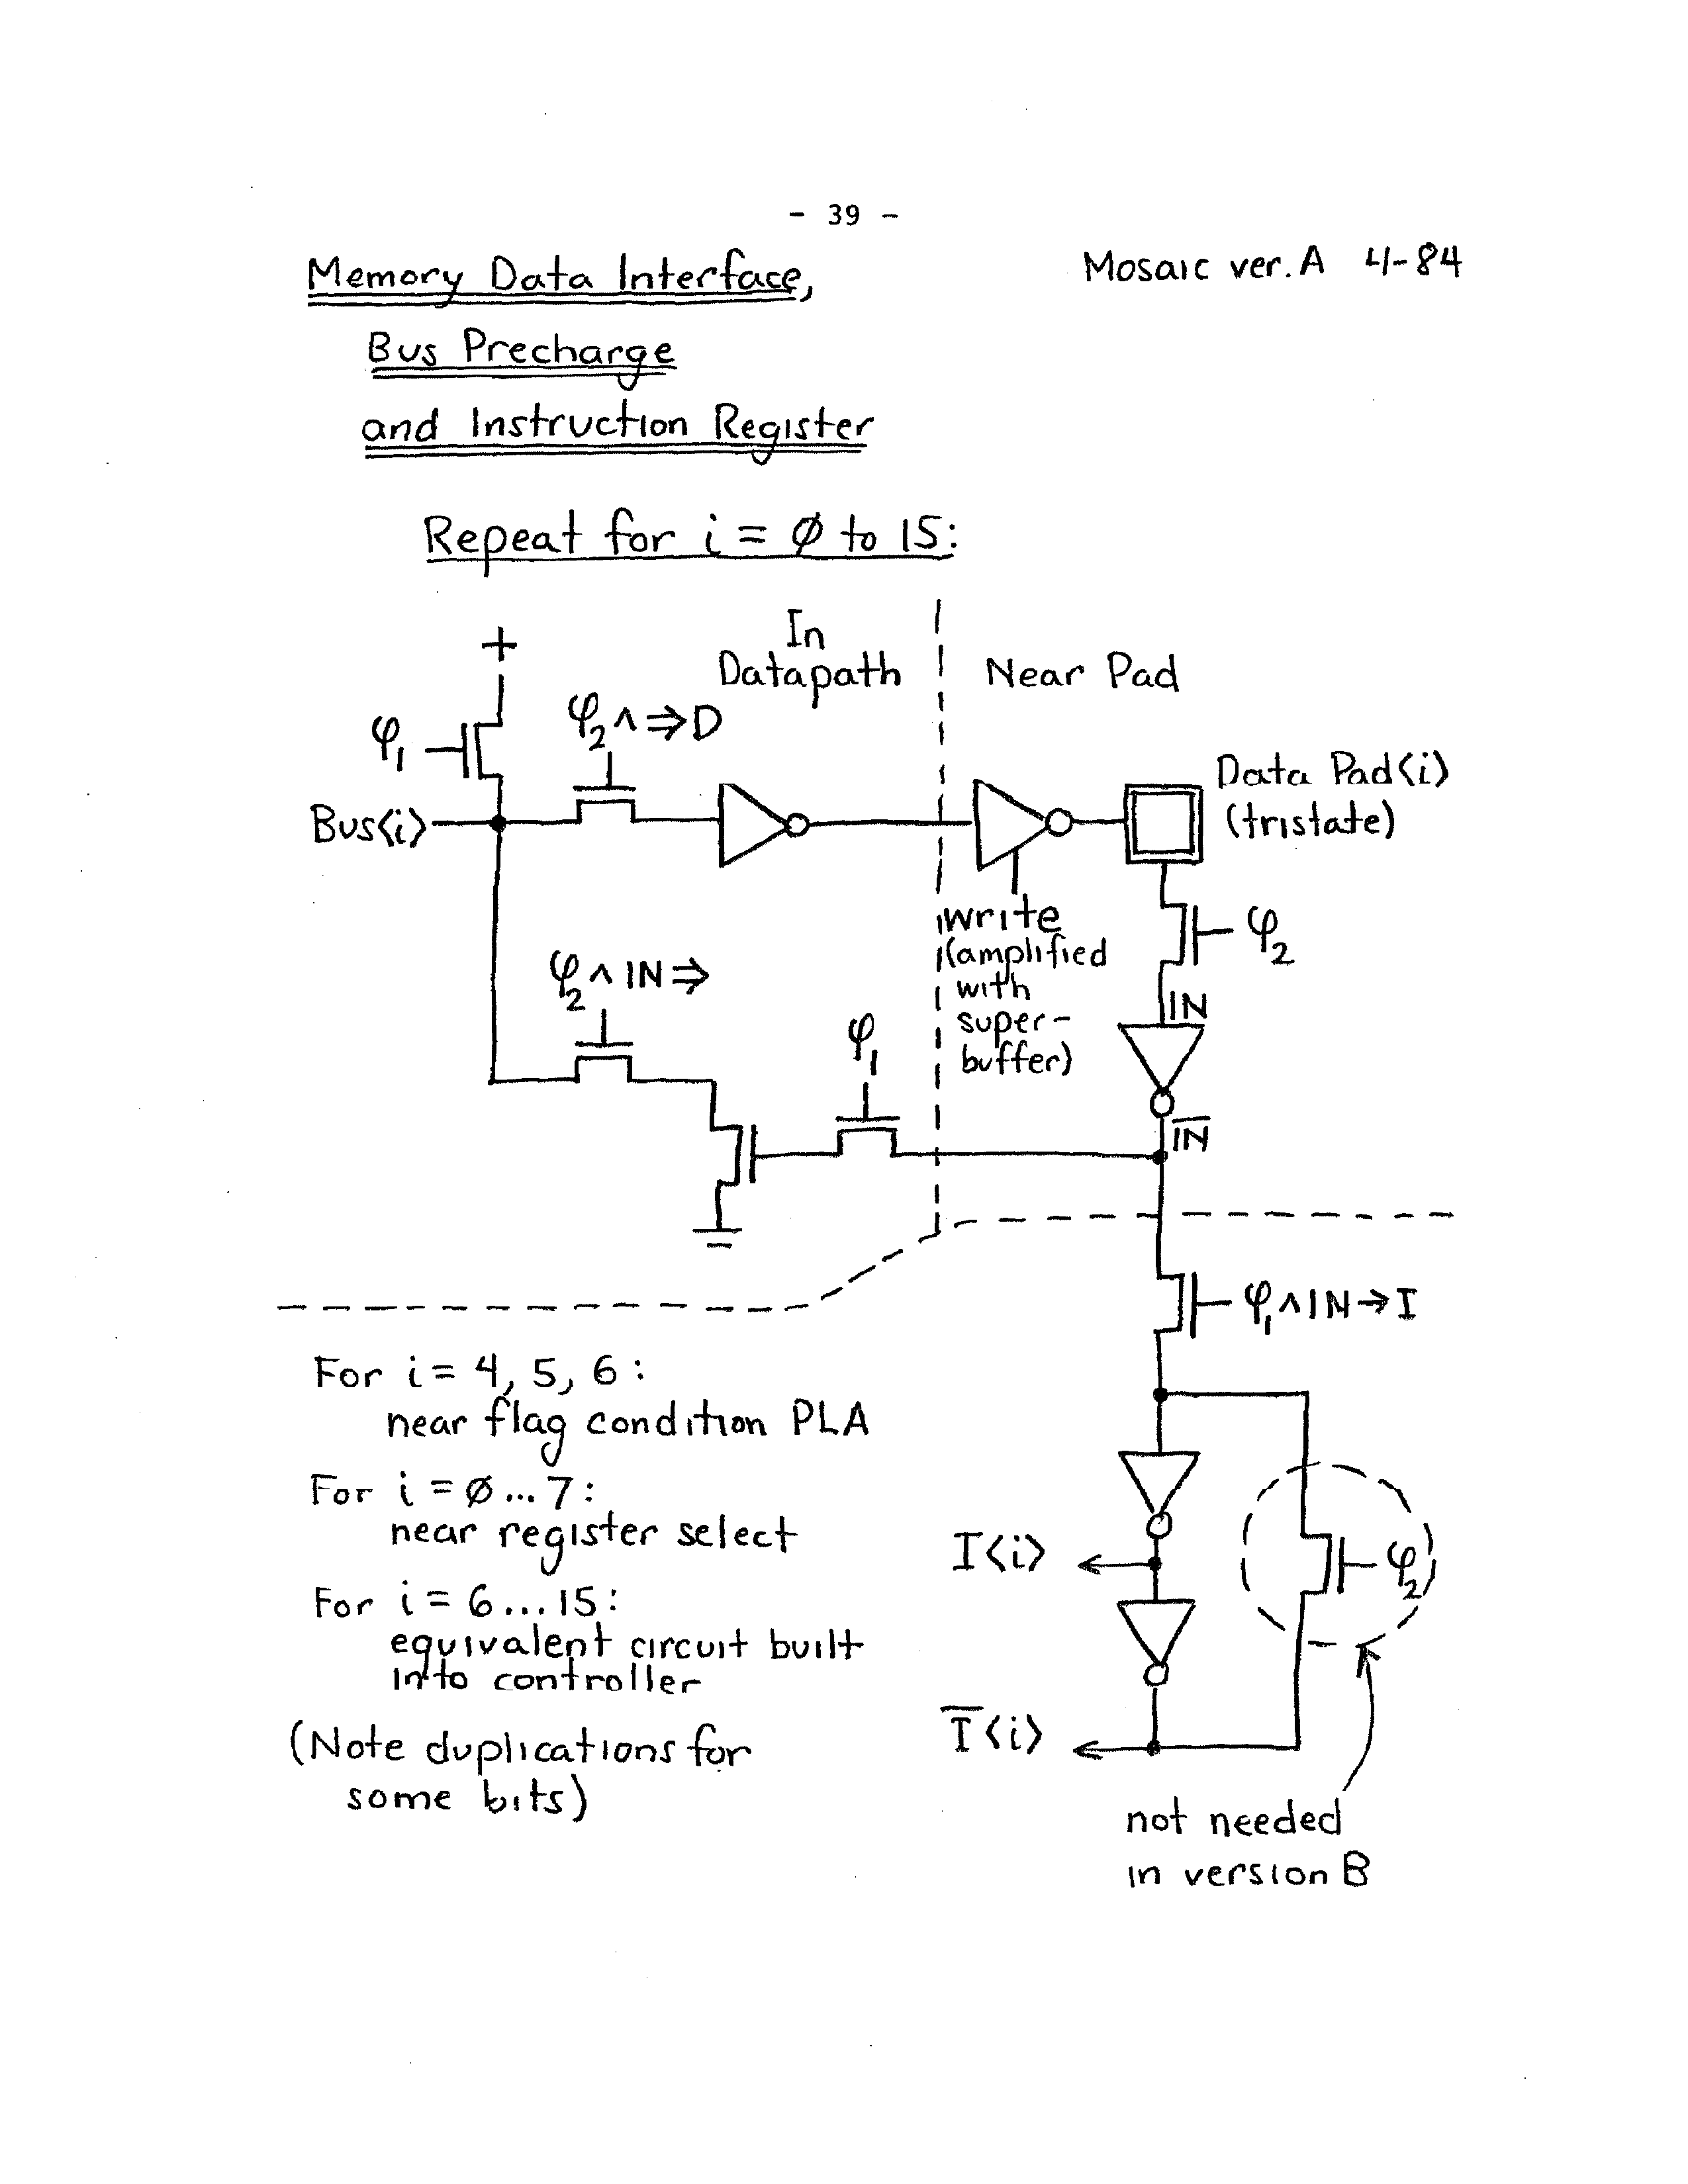 - 39 -
Memory Data Interface,
Mosaic ver. A 4-84
Bus Precharge
and Instruction Register
Repeat for i = Ø to 15:
+
In
Datapath
Near Pad
φ₁
φ₂ ∧ ⇒D
Data Pad⟨i⟩
(tristate)
Bus⟨i⟩
write
(amplified
with
super-
buffer)
φ₂
φ₂ ∧ IN⇒
φ₁
IN
I̅N̅
φ₁ ∧ IN→I
For i = 4, 5, 6 :
near flag condition PLA
For i = Ø ... 7 :
near register select
For i = 6 ... 15 :
equivalent circuit built
into controller
(Note duplications for
some bits)
I⟨i⟩
φ₂
I̅⟨i⟩
not needed
in version B